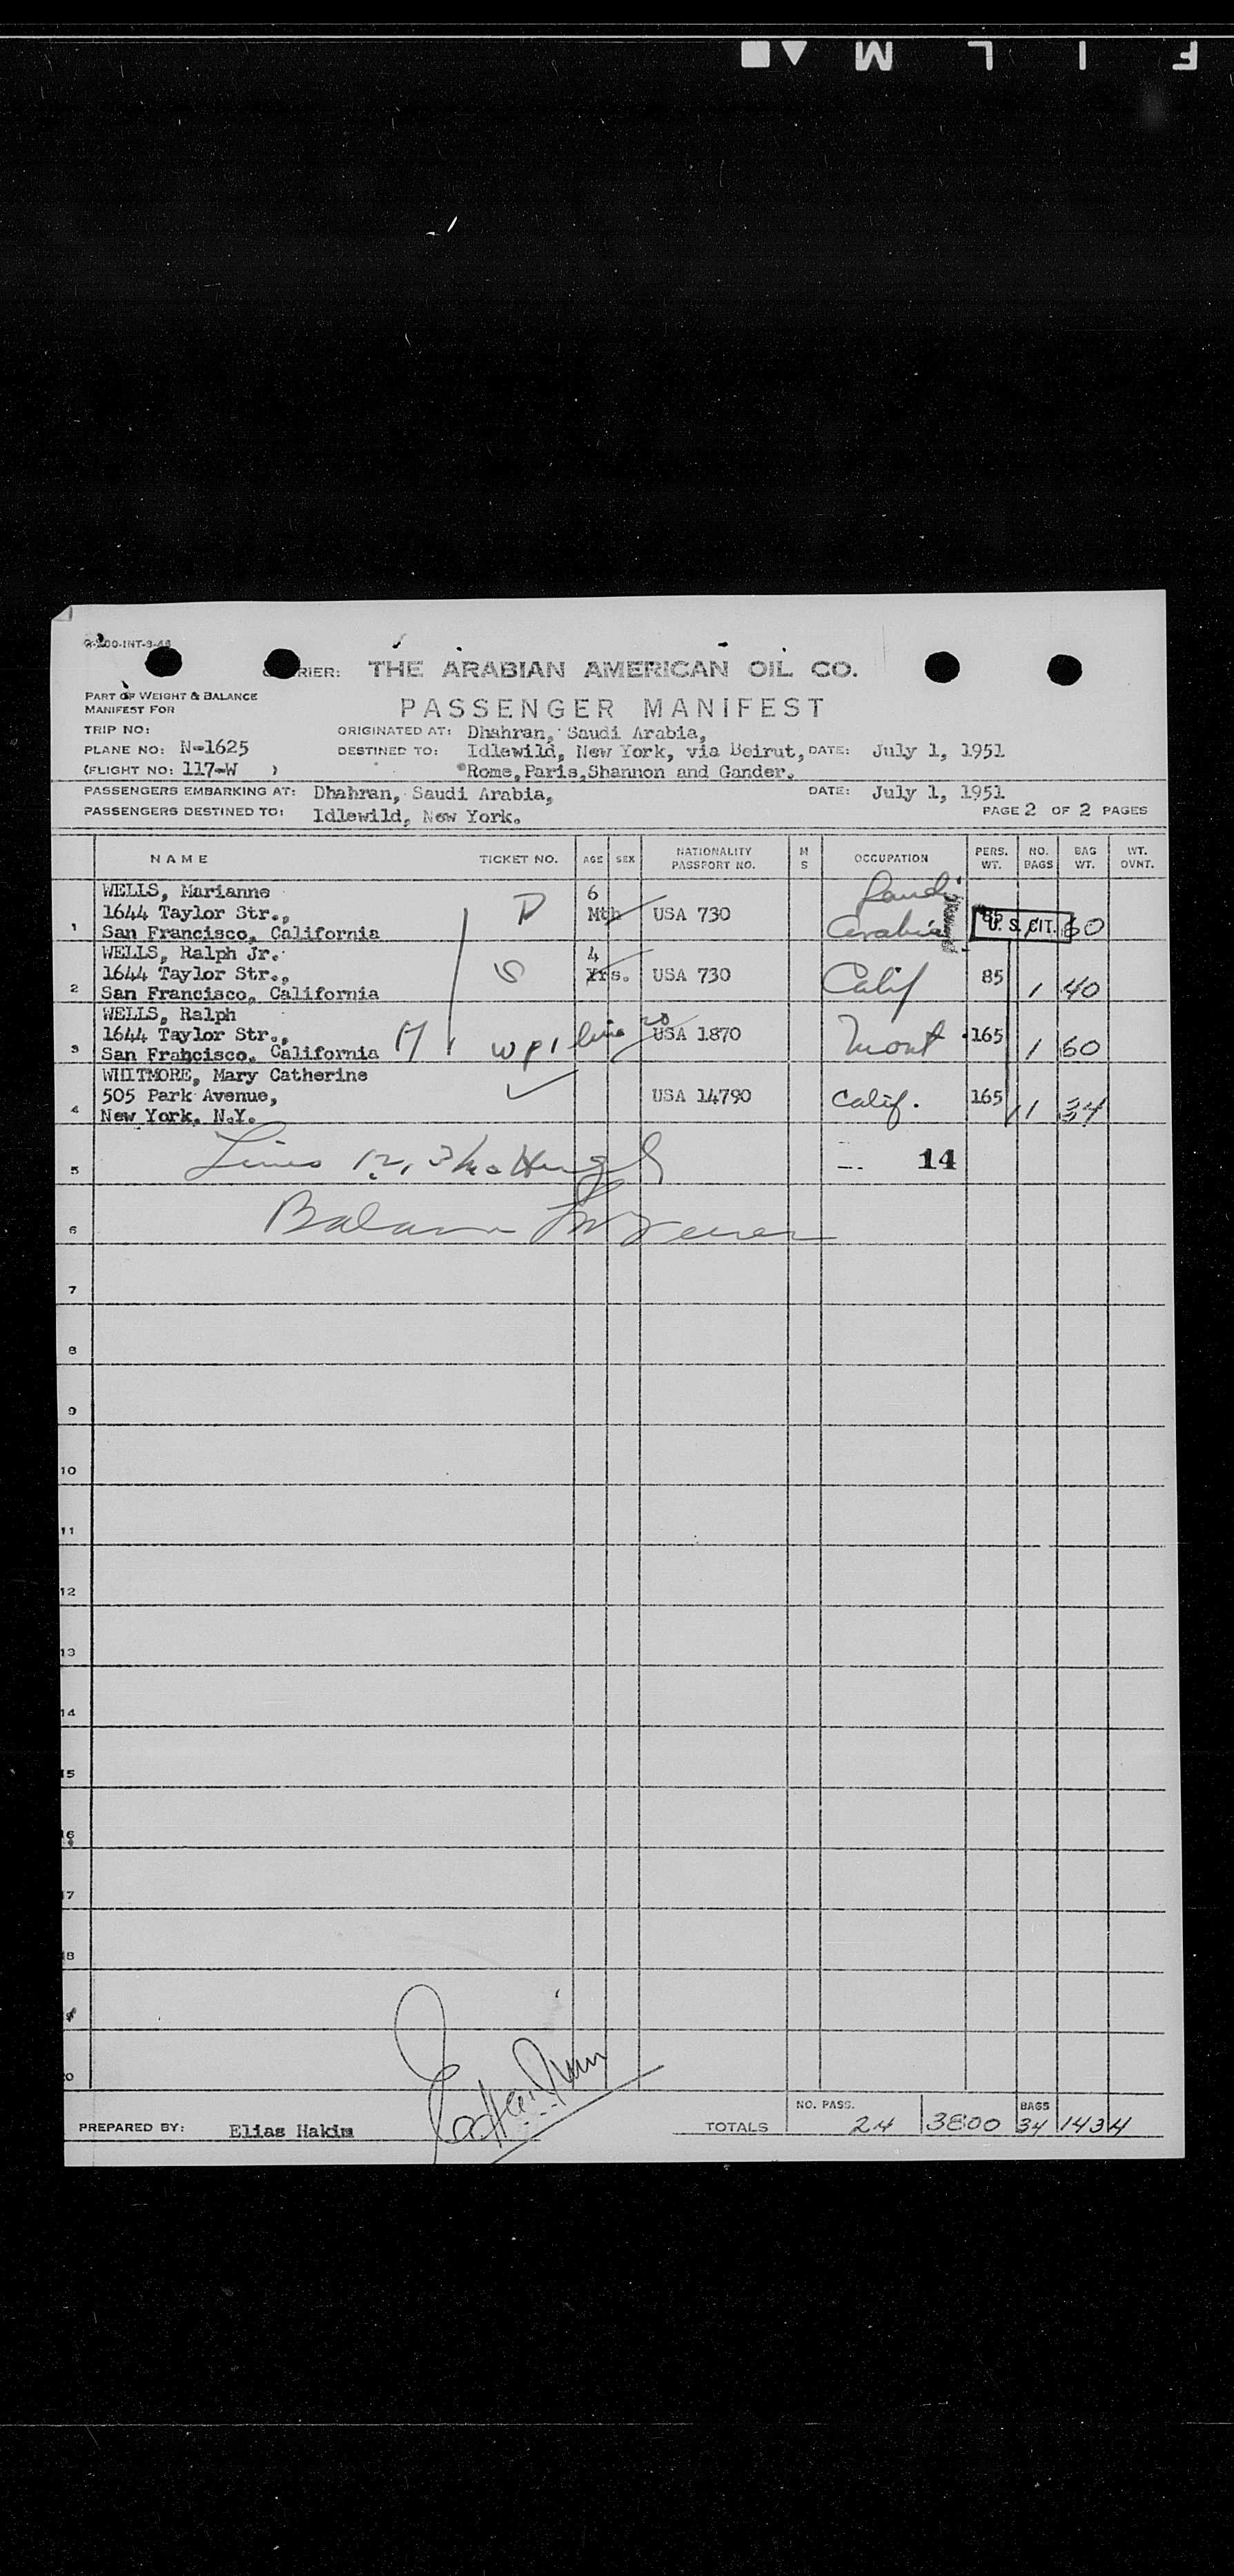 F I L M
CARRIER: THE ARABIAN AMERICAN OIL CO.
PART OF WEIGHT & BALANCE
MANIFEST FOR
PASSENGER MANIFEST
TRIP NO: ORIGINATED AT: Dhahran, Saudi Arabia,
PLANE NO: N-1625 DESTINED TO: Idlewild, New York, via Beirut, DATE: July 1, 1951
(FLIGHT NO: 117-W ) Rome, Paris, Shannon and Gander.
PASSENGERS EMBARKING AT: Dhahran, Saudi Arabia, DATE: July 1, 1951
PASSENGERS DESTINED TO: Idlewild, New York. PAGE 2 OF 2 PAGES
NAME TICKET NO. AGE SEX NATIONALITY PASSPORT NO. M S OCCUPATION PERS. WT. NO. BAGS BAG WT. WT. OVNT.
WELLS, Marianne 6 Saudi
1 1644 Taylor Str., D Mth USA 730 Arabia 85 U. S. CIT. 60
San Francisco, California
WELLS, Ralph Jr. 4
2 1644 Taylor Str., S Yrs. USA 730 Calif 85 1 40
San Francisco, California
WELLS, Ralph
3 1644 Taylor Str., H w p 1 line 20 USA 1870 Mont 165 1 60
San Francisco, California
WHITMORE, Mary Catherine
4 505 Park Avenue, USA 14790 Calif. 165 1 34
New York, N.Y.
5 Lines 14
6 Balance
7
8
9
10
11
12
13
14
15
16
17
18
PREPARED BY: Elias Hakim TOTALS NO. PASS. 24 3800 BAGS 34 1434